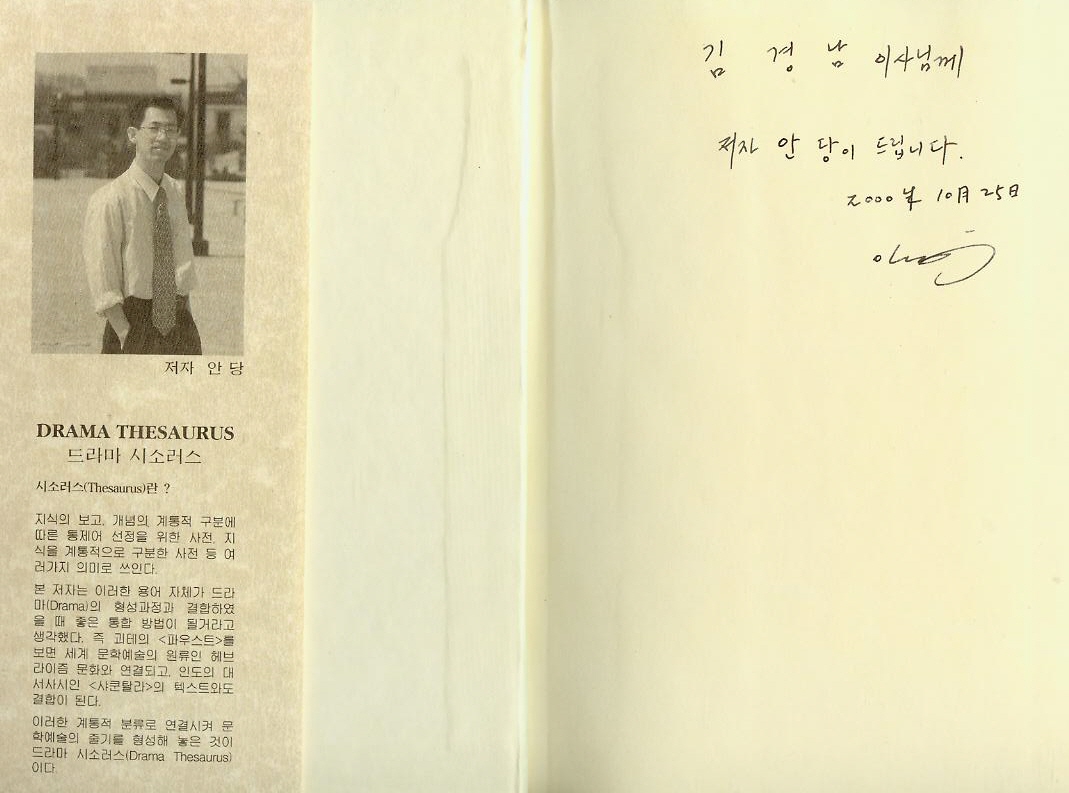 저자 안 당
DRAMA THESAURUS
드라마 시소러스
시소러스(Thesaurus)란 ?
지식의 보고, 개념의 계통적 구분에
따른 통제어 선정을 위한 사전, 지
식을 계통적으로 구분한 사전 등 여
러가지 의미로 쓰인다.
본 저자는 이러한 용어 자체가 드라
마(Drama)의 형성과정과 결합하였
을 때 좋은 통합 방법이 될거라고
생각했다. 즉 괴테의 <파우스트>를
보면 세계 문학예술의 원류인 헤브
라이즘 문화와 연결되고, 인도의 대
서사시인 <샤쿤탈라>의 텍스트와도
결합이 된다.
이러한 계통적 분류로 연결시켜 문
학예술의 줄기를 형성해 놓은 것이
드라마 시소러스(Drama Thesaurus)
이다.
김 경 남 이사님께
저자 안 당이 드립니다.
2000年 10月 25日